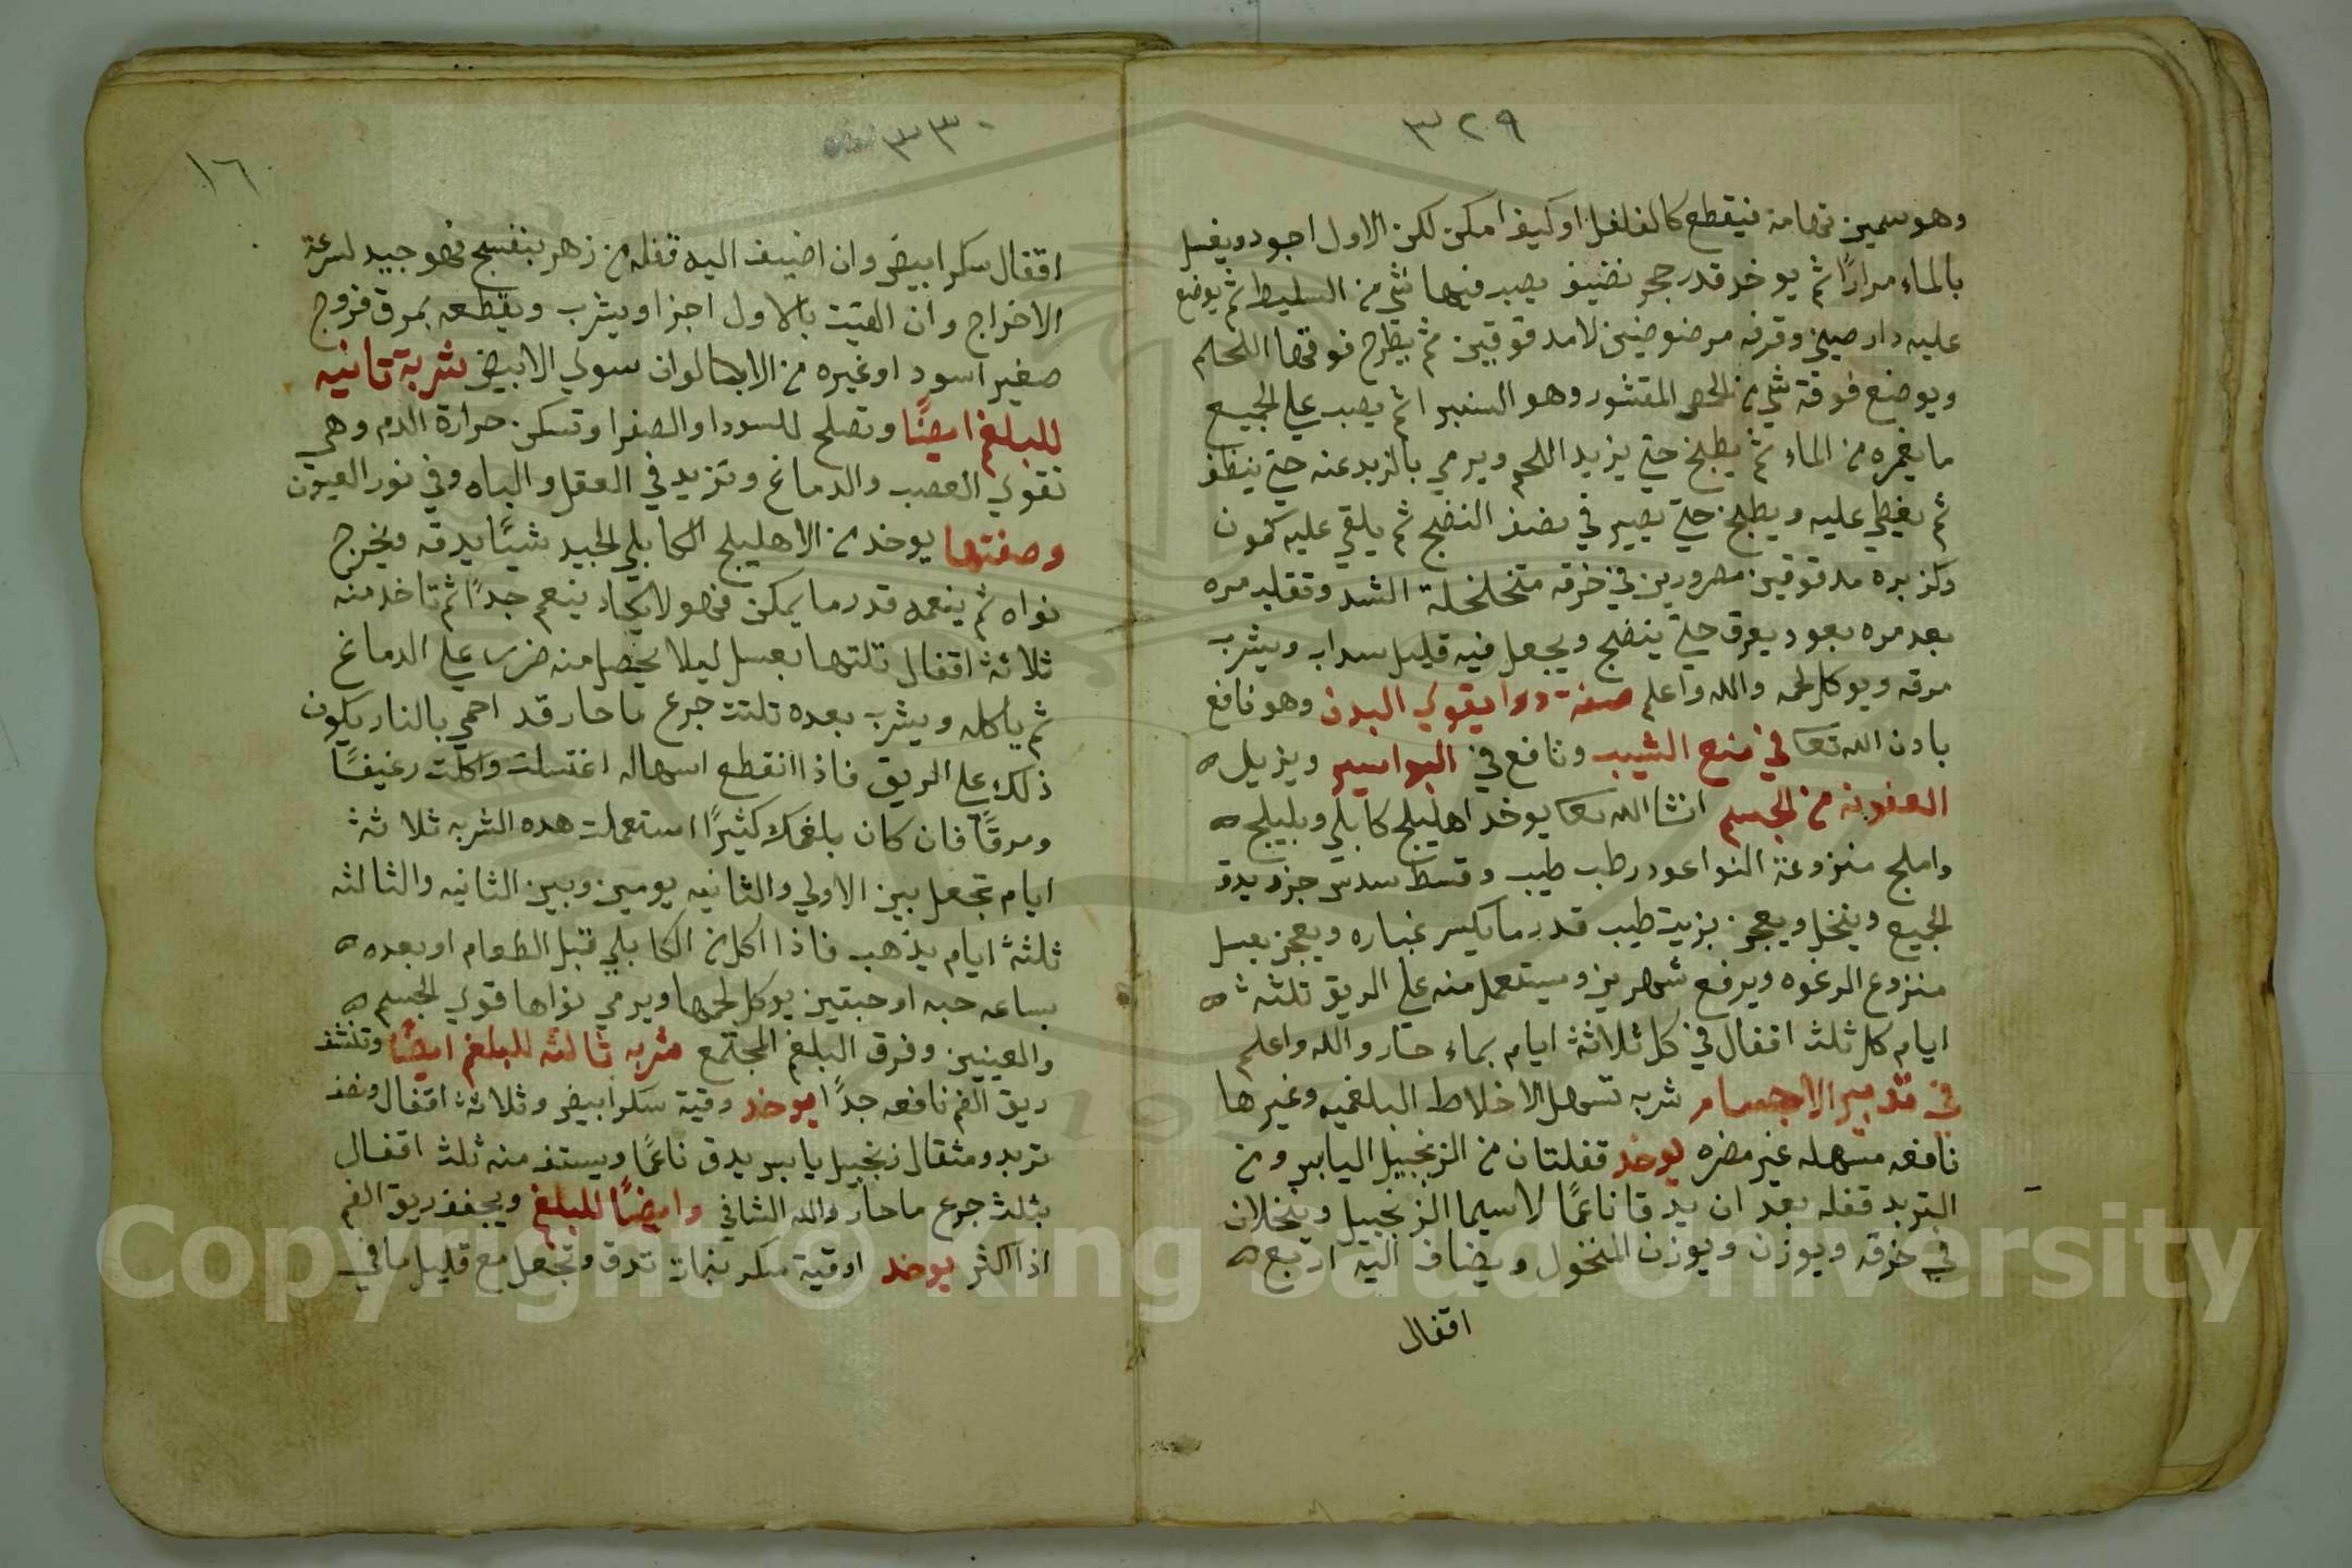 ٣٢٩
وهو سمين فهامة فيقطع كالفلفل او كيف امكن لكن الاول اجود ويغسل
بالماء مرارًا ثم يوخد قدر حجر نضيف يصب فيها شي من السليط ثم يوضع
عليه دار صيني وقرفه مرضوضين لا مدقوقين ثم يطرح فوقها اللحم
ويوضع فوقه شي من الحمص المقشور وهو السنبرا ثم يصب علي الجميع
ما يغمره من الماء ثم يطبخ حتي يزيد اللحم ويرمي بالزبد عنه حتي ينظف
ثم يغطي عليه ويطبخ حتي يصير في نصف النضج ثم يلقي عليه كمون
وكزبره مدقوقين مصرورين في خرقه متخلخلة الشد وتقلبه مره
بعد مره بعود يعرق حتي ينضج ويجعل فيه قليل سداب ويشرب
مرقه ويوكل لحمه والله واعلم صفة دوا يقوي البدن وهو نافع
بادن الله تعا في منع الشيب ونافع في البواسير ويزيل ه
العفونه من الجسم انشا الله تعا يوخد اهليلج كابلي وبليلج ه
واملج منزوعة النوا عود رطب طيب وقسط سدس جزو يدق
الجميع وينخل ويعجن بزيت طيب قدر ما يكسر غباره ويعجن بعسل
منزوع الرغوه ويرفع شهرين ويستعمل منه علي الريق ثلثة ه
ايام كل ثلث اقفال في كل ثلاثة ايام بماء حار والله واعلم
في تدبير الاجسام شربه تسهل الاخلاط البلغميه وغيرها
نافعه مسهله غير مضره يوخد قفلتان من الزنجبيل اليابس ومن
التربد قفله بعد ان يدقا ناعمًا لاسيما الزنجبيل وينخلان
في خرقه ويوزن ويوزن المنخول ويضاف اليه اربع ه
اقفال
٣٣٠
١٦
اقفال سكر ابيض وان اضيف اليه قفله من زهر بنفسج فهو جيد لسرعة
الاخراج وان القيت بالاول اجزا ويشرب ويقطعه بمرق فروج
صغير اسود او غيره من الابهالوان سوي الابيض شربة تانيه
للبلغم ايضًا وتصلح للسودا والصفرا وتسكن حرارة الدم وهي
تقوي العصب والدماغ وتزيد في العقل والباه وفي نور العيون
وصفتها يوخد من الاهليلج الكابلي الجيد شيًا يدقه ويخرج
نواه ثم ينعمه قدر ما يمكن فهو لا يكاد ينعم جدًا ثم تاخد منه
ثلاثة اقفال تلتها بعسل ليلا يحصل منه ضرر علي الدماغ
ثم ياكله ويشرب بعده ثلثة جرع ما حار قد احمي بالنار يكون
ذلك علي الريق فاذا انقطع اسهاله اغتسلت واكلت رغيفًا
ومرقًا فان كان بلغمك كثيرًا استعملت هده الشربه ثلاثة
ايام تجعل بين الاولي والثانيه يومين وبين الثانيه والثالثه
ثلثة ايام يذهب فاذا اكل من الكابلي قبل الطعام او بعده ه
بساعه حبه او حبتين يوكل لحمها ويرمي نواها قوي الجسم ه
والعينين وفرق البلغم المجتمع شربه ثالثه للبلغم ايضًا وتنشف
ريق الفم نافعه جدًا يوخد وقية سكر ابيض وثلاثة اقفال ونصف
تربد ومثقال زنجبيل يابس يدق ناعمًا ويستف منه ثلث اقفال
بثلث جرع ما حار والله الشافي وايضًا للبلغم ويجفف ريق الفم
اذا اكثر يوخد اوقية سكر بنات تدق وتجعل مع قليل ما في
Copyright © King Saud University